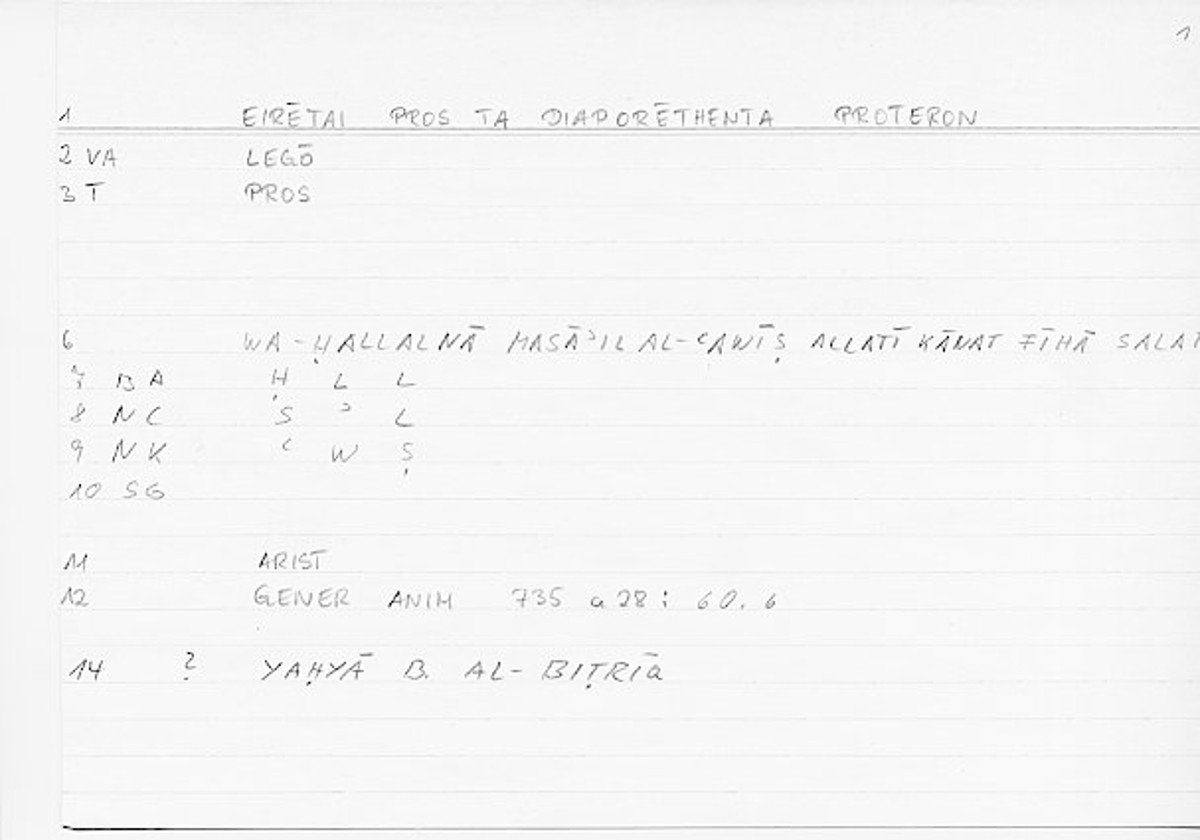 1
1 EIRĒTAI PROS TA DIAPORĒTHENTA PROTERON
2 VA LEGŌ
3 T PROS
6 WA-ḤALLALNĀ MASĀʾIL AL-ʿAWĪṢ ALLATĪ KĀNAT FĪHĀ SALAT
7 BA Ḥ L L
8 NC S ʾ L
9 NK ʿ W Ṣ
10 SG
11 ARIST
12 GENER ANIM 735 a 28 : 60. 6
14 ? YAḤYĀ B. AL-BIṬRĪQ